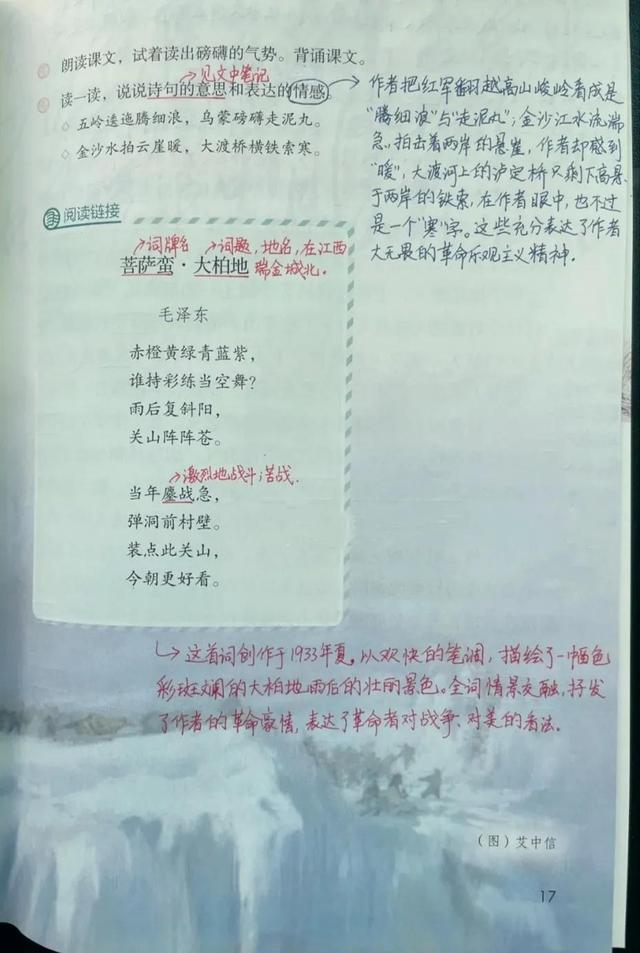 朗读课文，试着读出磅礴的气势。背诵课文。
见文中笔记
读一读，说说诗句的意思和表达的情感。
◇ 五岭逶迤腾细浪，乌蒙磅礴走泥丸。
◇ 金沙水拍云崖暖，大渡桥横铁索寒。
作者把红军翻越高山峻岭看成是
“腾细浪”与“走泥丸”；金沙江水流湍
急，拍击着两岸的悬崖，作者却感到
“暖”，大渡河上的泸定桥只剩下高悬
于两岸的铁索，在作者眼中，也不过
是一个“寒”字。这些充分表达了作者
大无畏的革命乐观主义精神．
阅读链接
词牌名 词题，地名，在江西
菩萨蛮·大柏地 瑞金城北．
毛泽东
赤橙黄绿青蓝紫，
谁持彩练当空舞？
雨后复斜阳，
关山阵阵苍。
激烈地战斗；苦战．
当年鏖战急，
弹洞前村壁。
装点此关山，
今朝更好看。
这首词创作于1933年夏。以欢快的笔调，描绘了一幅色
彩斑斓的大柏地雨后的壮丽景色。全词情景交融，抒发
了作者的革命豪情，表达了革命者对战争、对美的看法．
（图）艾中信
17